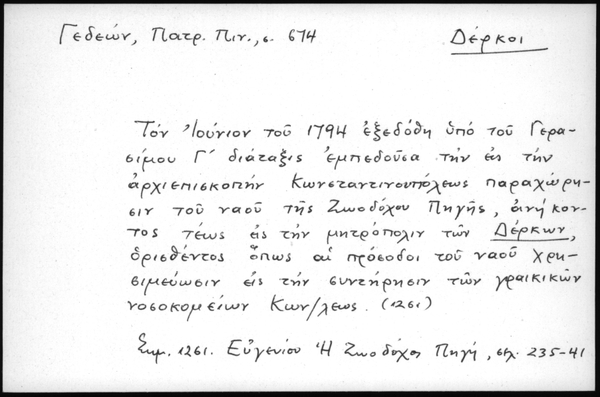 Γεδεών, Πατρ. Πιν., σ. 674
Δέρκοι
Τόν Ἰούνιον τοῦ 1794 ἐξεδόθη ὑπό τοῦ Γερα-
σίμου Γ΄ διάταξις ἐμπεδοῦσα τήν εἰς τήν
ἀρχιεπισκοπήν Κωνσταντινουπόλεως παραχώρη-
σιν τοῦ ναοῦ τῆς Ζωοδόχου Πηγῆς, ἀνήκον-
τος τέως εἰς τήν μητρόπολιν τῶν Δέρκων,
ὁρισθέντος ὅπως αἱ πρόσοδοι τοῦ ναοῦ χρη-
σιμεύωσιν εἰς τήν συντήρησιν τῶν γραικικῶν
νοσοκομείων Κων/λεως. (1251)
Σημ. 1251. Εὐγενίου Ἡ Ζωοδόχος Πηγή, σελ. 235-41